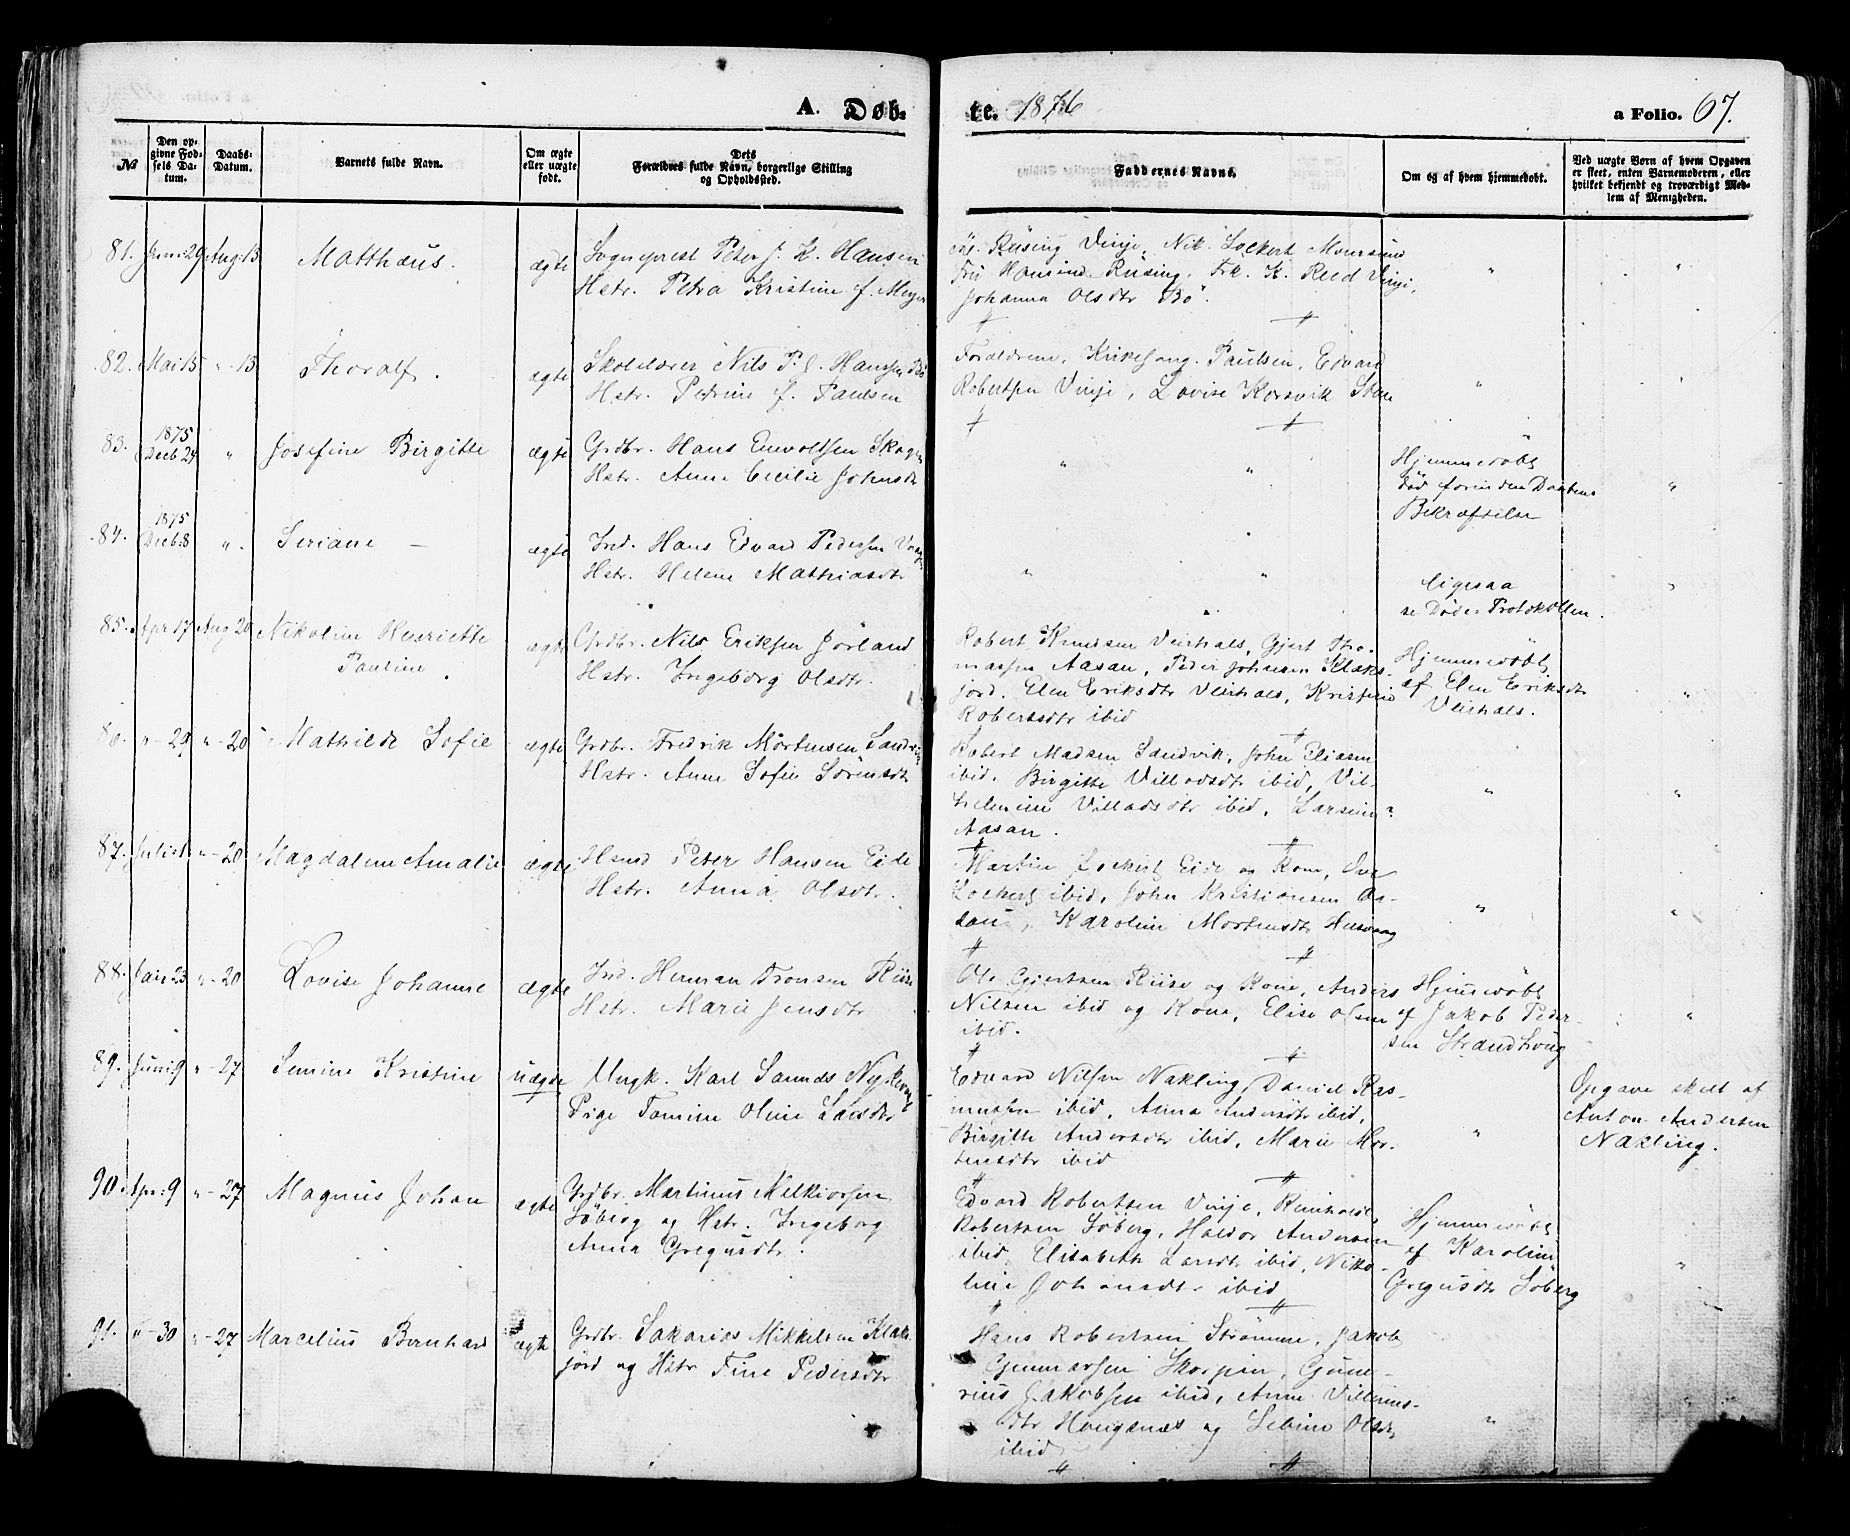 A. Døb-
te. 1876
a Folio. 67.
№
Den op-
givne Fød-
sels Da-
tum.
Daabs-
Datum.
Barnets fulde Navn.
Om ægte
eller uægte
født.
Dets
Forældres fulde Navn, borgerlige Stilling
og Opholdssted.
Faddernes Navne.
Om og af hvem hjemmedøbt.
Ved uægte Børn af hvem Opgaven
er skeet, enten Barnemoderen, eller
hvilket bekjendt og troværdigt Med-
lem af Menigheden.
81. Juni 29 Aug: 13 Matthæus. ægte
Sogneprest Peter J. K. Hansen
Hstr. Petra Kristine f. Meyer
Rüsing Vinje, Nik. Lockert Moursund
Fru Rüsing, Frk. K. Vinje,
Johanna Olsdtr Bö.
82. Mai 15 " - 13 Thoralf. ægte
Skolelærer Nils P. J. Hanssen Bö
Hstr. Pedrine f. Paulsen
Forældrene, Kirkesang. Paulsen, Edvard
Robertsen Vinje, Lovise Korsvik
83. 1875 Decb 24 " Josefine Birgitte ægte
Grdbr. Hans Enevoldsen Skogen
Hstr. Anne Cecilie Johnsdtr
Hjemmedöbt
död forinden Daabens
Bekræftelse
84. 1875 Decb: 8 " Seriane - ægte
Ind. Hans Edvard Pedersen
Hstr. Helene Mathiasdtr
ligesaa
se Døde Protokollen.
85. Apr 17 Aug 20 Nikoline Henriette
Pauline. ægte
Grdbr. Nils Eriksen Jörland
Hstr. Ingeborg Olsdtr.
Robert Knudsen Veirhals, Gjert Tho-
massen Aasan, Peder Johnsen Klaks-
jord, Elen Eriksdtr Veirhals, Kristine
Robertsdtr ibid
Hjemmedöbt
af Elen Eriksdtr
Veirhals.
86. " - 29 " - 20 Mathilde Sofie ægte
Grdbr. Fredrik Mörtensen Sandvik
Hstr. Anne Sofie Sörensdtr
Robert Madsen Sandvik, John Eliasen
ibid, Birgitte Villadsdtr ibid, Vil-
helmine Villadsdtr ibid,
Aasan.
87. Juli 1 " - 20 Magdalene Amalie ægte
Hmd Peter Hansen Eide
Hstr. Anna Olsdtr.
Martin Lockert Eide og Kone,
Lockert ibid, John Kristiansen Aa-
san, Karoline Mortensdtr
88. Juni 23 " - 20 Lovise Johanne ægte
Ind. Herman Tronsen Riise
Hstr. Marie Jensdtr
Ole Gjertsen Riise og Kone, Anders
Nilsen ibid og Kone, Elise Olsen
ibid.
Hjemmedöbt
af Jakob Peder-
sen Strandhoug
89. Juni 9 " - 27 Semine Kristine uægte
Ungk. Karl
Pige Tomine Oline Larsdtr
Edvard Nilsen Nakling, Daniel Ras-
mussen ibid, Anna Andersdtr ibid,
Birgitte Andersdtr ibid, Marie Mor-
tensdtr ibid
Opgave skeet af
Anton Andersen
Nakling.
90. Apr: 9 " - 27 Magnus Johan ægte
Grdbr. Martinus Melkiorsen
Söberg og Hstr. Ingeborg
Anna Gregusdtr.
Edvard Robertsen Vinje, Reinholdt
Robertsen Söberg, Haldor Andersen
ibid, Elisabeth Larsdtr ibid, Niko-
line Johansdtr ibid
Hjemmedöbt
af Karoline
Gregusdtr Söberg
91. " - 30 " - 27 Marcelius Bernhard ægte
Grdbr. Sakarias Mikkelsen Klaks-
jord og Hstr Fine Pedersdtr
Hans Robertsen Strömme, Jakob
Gunnarsen Skorpen, Gune-
rius Jakobsen ibid, Anne Villums-
dtr Hougsnæs og Sebine Olsdtr
ibid